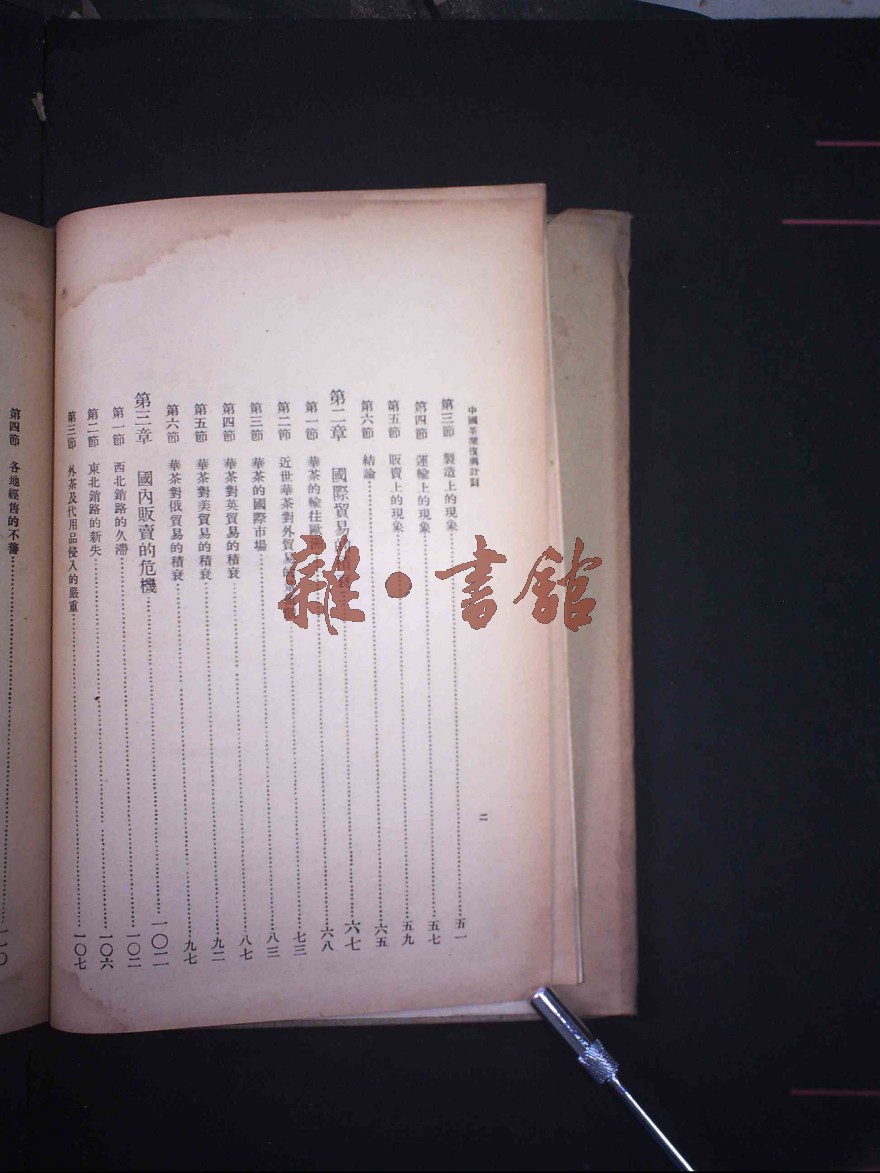 中國茶業復興計劃
第三節 製造上的現象……五一
第四節 運輸上的現象……五七
第五節 販賣上的現象……五九
第六節 結論……六五
第二章 國際貿易……六七
第一節 華茶的輸往歐……六八
第二節 近世華茶對外貿易……七三
第三節 華茶的國際市場……八三
第四節 華茶對英貿易的積衰……八七
第五節 華茶對美貿易的積衰……九二
第六節 華茶對俄貿易的積衰……九七
第三章 國內販賣的危機……一〇二
第一節 西北銷路的久滯……一〇二
第二節 東北銷路的新失……一〇六
第三節 外茶及代用品侵入的嚴重……一〇七
二
第四節 各地經售的不善……一一〇
雜·書館